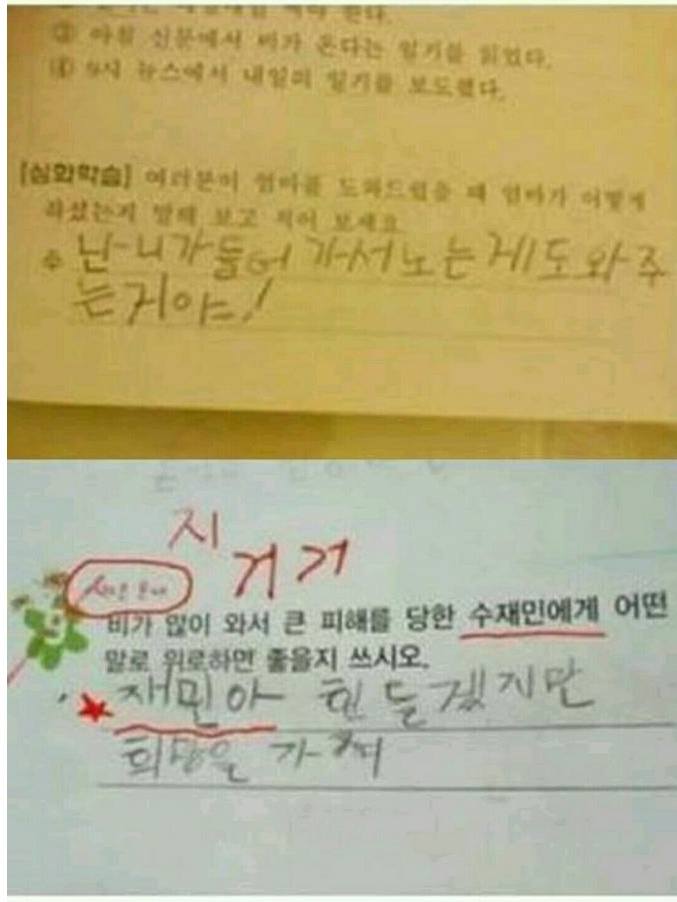 ③ 아침 신문에서 비가 온다는 일기를 읽었다.
④ 9시 뉴스에서 내일의 일기를 보도했다.
[심화학습] 여러분이 엄마를 도와드렸을 때 엄마가 어떻게
하셨는지 말해 보고 적어 보세요
난 니가 들어가서 노는게 도와주
는거야!
지
거거
비가 많이 와서 큰 피해를 당한 수재민에게 어떤
말로 위로하면 좋을지 쓰시오.
재민아 힌들겠지만
희망을 가져